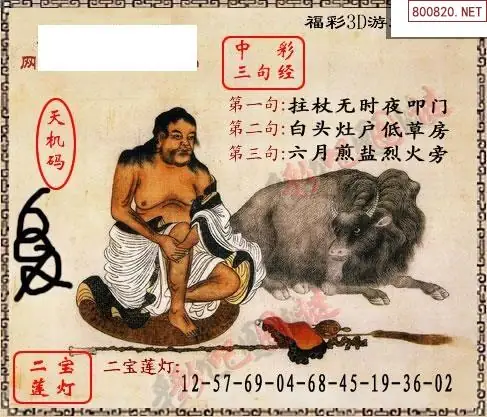 福彩3D游
800820.NET
网
中彩
三句经
第一句:拄杖无时夜叩门
第二句:白头灶户低草房
第三句:六月煎盐烈火旁
天机码
二宝
莲灯
二宝莲灯:
12-57-69-04-68-45-19-36-02